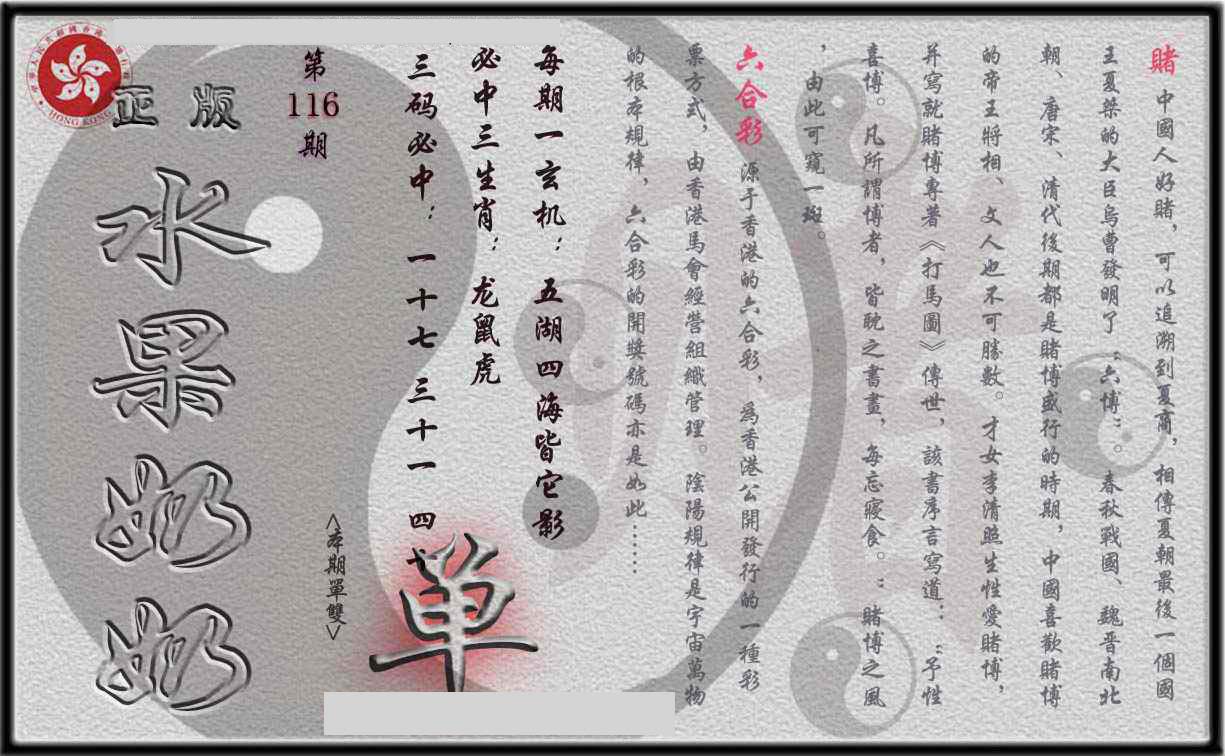 賭 中國人好賭，可以追溯到夏商，相傳夏朝最後一個國
王夏桀的大臣烏曹發明了“六博”。春秋戰國、魏晋南北
朝、唐宋、清代後期都是賭博盛行的時期，中國喜歡賭博
的帝王將相、文人也不可勝數。才女李清照生性愛賭博，
并寫就賭博專著《打馬圖》傳世，該書序言寫道：“予性
喜博。凡所謂博者，皆耽之書畫，每忘寢食。“賭博之風
，由此可窺一斑。
六合彩 源于香港的六合彩，為香港公開發行的一種彩
票方式，由香港馬會經營組織管理。陰陽規律是宇宙萬物
的根本規律，六合彩的開獎號碼亦是如此……
每期一玄机：五湖四海皆它影
必中三生肖：龙鼠虎
三码必中：一十七 三十一 四十
單
<本期單雙>
第
116
期
正版
水果奶奶
HONG KONG